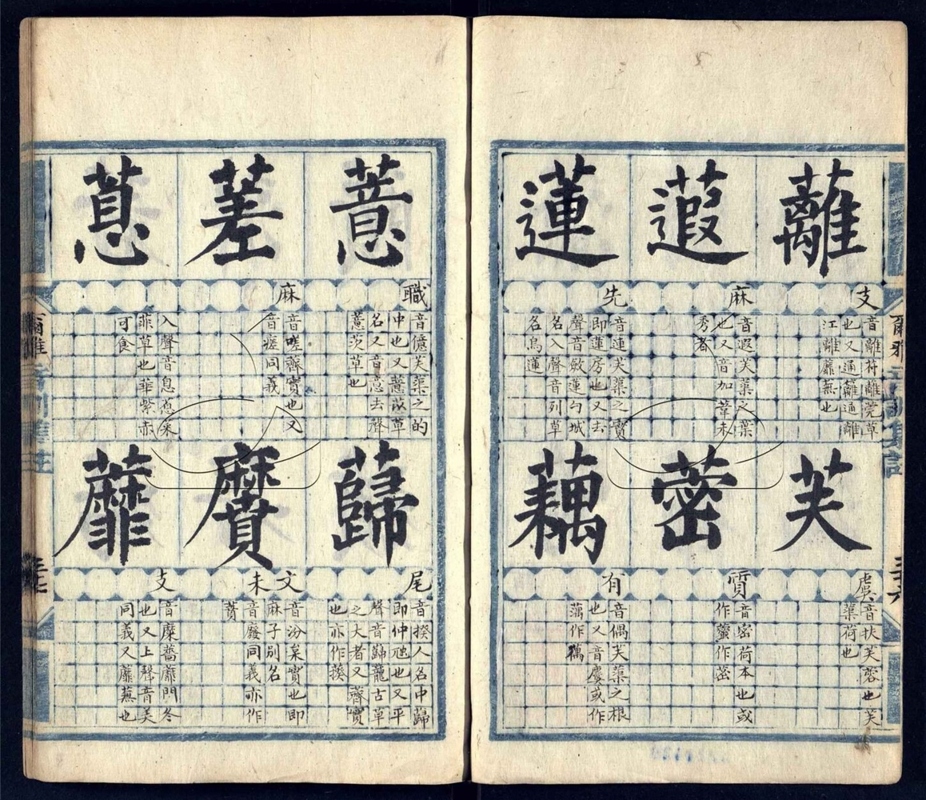 爾雅
三十六
蘺
支
音離苻離莞草
也又通離通離
江離蘼蕪也
芙
虞
音扶芙蓉也芙
蕖荷也
蕸
麻
音遐芙蕖之葉
也又音加葦未
秀者
蔤
質
音密荷本也或
蓮
先
音連芙蕖之實
即蓮房也又去
聲音斂蓮勺城
名入聲音列草
名烏蓮
藕
有
音偶芙蕖之根
也又音或作
薏
職
音億芙蕖之的
中也又薏苡草
名又音意去聲
薏茨草也
蘬
尾
音揆人名中蘬
即仲虺也又平
聲音歸蘢古草
之大者又薺實
也亦作
蒫
麻
音嗟薺實也又
音瘥同義
黂
文
未
音汾枲實也即
麻子別名
音廢同義亦作
蕡
蒠
入聲音息蒠菜
菲草也華紫赤
可食
蘼
支
音糜薔蘼門冬
也又上聲音美
同義又蘼蕪也
爾雅
三十七